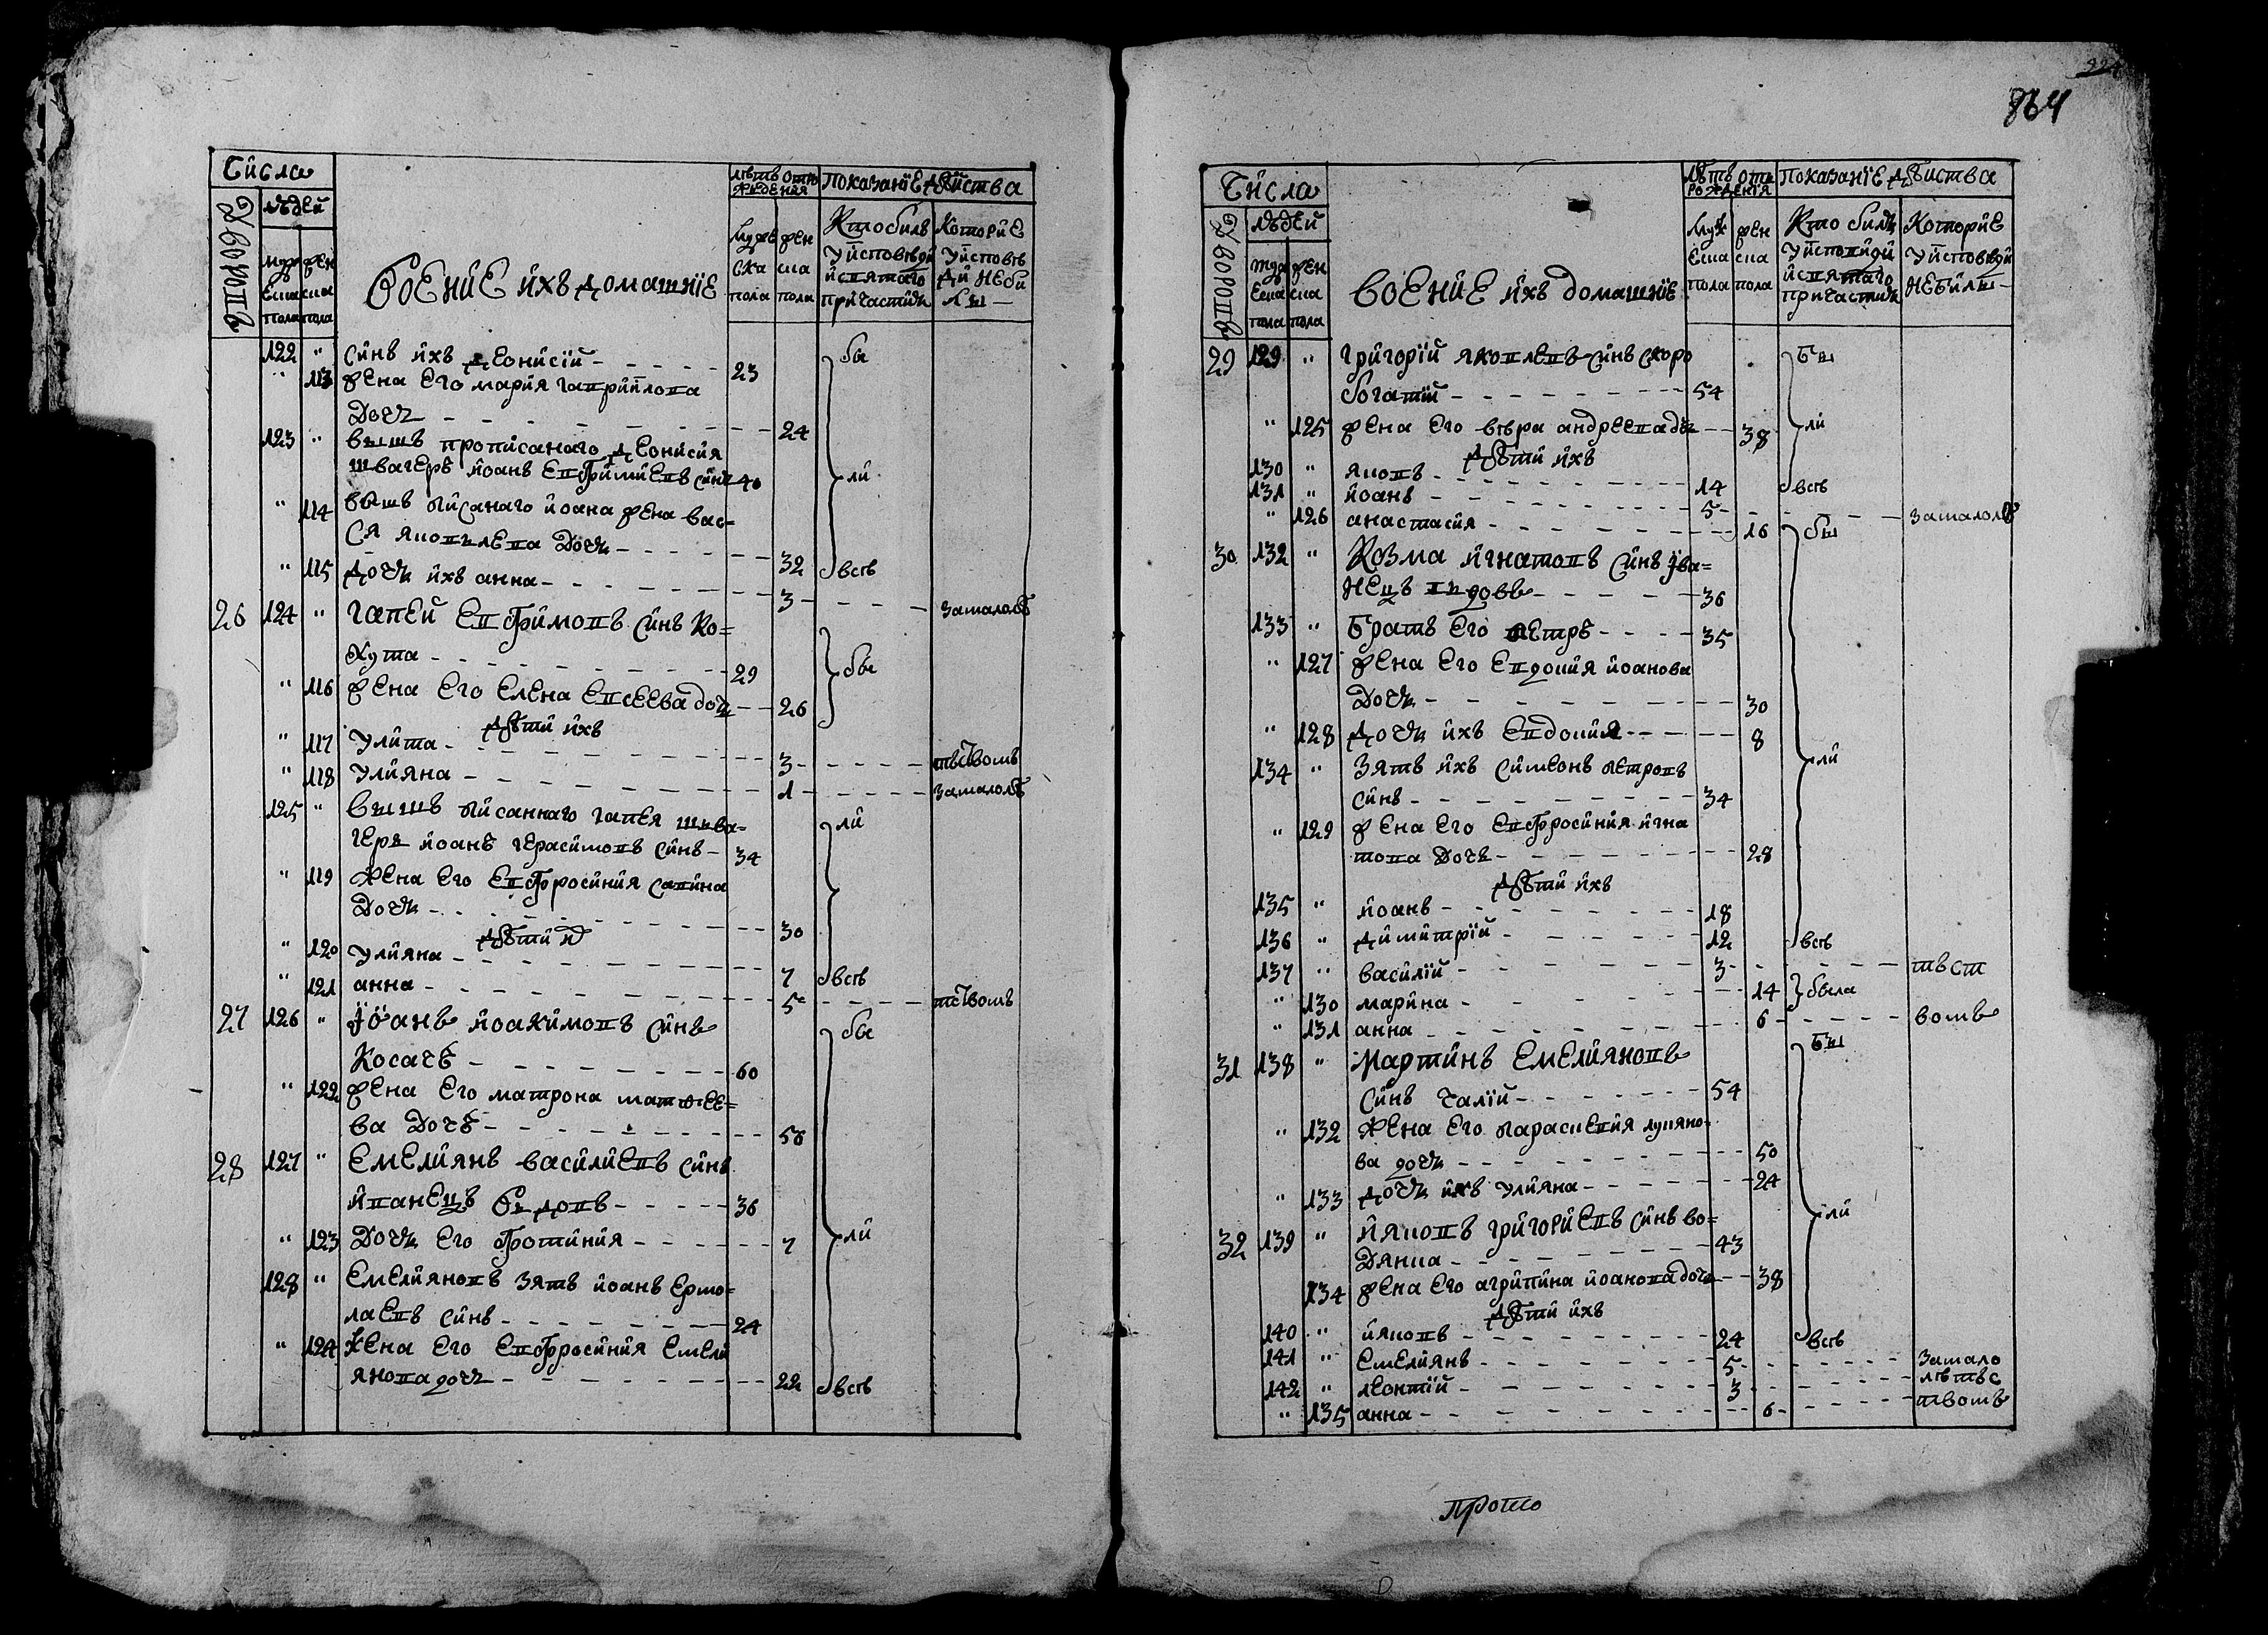 Числа
Дворовъ
людей
муже
ска
пола
жен
ска
пола
Военние ихъ домашніе
лѣтъ отъ
рождения
муже
ска
пола
жен
ска
пола
показаніе дѣйства
Кто билъ
у исповѣди
и святаго
причастия
Которие
у исповѣ
ди неби
ли
122 " синъ ихъ Деонисій - 23 бы
" 113 жена его мария гаврийлова
дочь - 24
123 " вышъ прописаного Деонисия
швагеръ иоанъ евфимиевъ синъ 40 ли
" 114 вышъ писанаго иоана жена вас-
ся яковълева дочь - 32
" 115 дочь ихъ анна - 3 всѣ
замалолѣ
26 124 " гапей евфимовъ синъ ко=
жута - 29
" 116 жена его елена евсеева дочь - 26 бы
дѣти ихъ
" 117 улита - 3 - тъствомъ
" 118 улияна - 1 - замалолѣ
125 " вышъ писаннаго гапея шъва=
геръ иоанъ герасимовъ синъ - 34 ли
" 119 жена его евфросиния савина
дочь - 30
дѣти их
" 120 улияна - 7 всѣ
" 121 анна - 5 - тствомъ
27 126 " Іоанъ иоакимовъ синъ бы
Косачъ - 60
" 122 жена его матрона матфее=
ва дочъ - 58
28 127 " Емелиянъ василиевъ синъ
иванецъ въдовъ - 36
" 123 Дочь его фотиния - 7 ли
128 " Емелияновъ зять иоанъ ермо=
лаевъ синъ - 24
" 124 жена его евфросиния емели
янова дочь - 22 всѣ
864
Числа
Дворовъ
людей
муже
ска
пола
жен
ска
пола
военние ихъ домашніе
лѣтъ отъ
рожденія
муж
еска
пола
жен
ска
пола
показаніе дѣйства
Кто билъ
у исповиди
и святаго
причастия
Которие
у исповѣди
небили -
29 129 " григорій яковлевъ синъ скоро бы
богатій - 54
" 125 жена его вѣра андреева дочь - 38 ли
дѣти ихъ
130 " яковъ - 14 всѣ
131 " иоанъ - 5 - замалолѣ
" 126 анастасия - 16 бы
30 132 " Козма игнатовъ синъ Ива=
нецъ въдовъ - 36
133 " братъ его петръ - 35
" 127 жена его евдокия иоанова
дочь - 30
" 128 дочь ихъ евдокия - 8
134 " зять ихъ симеонъ петровъ ли
синъ - 34
" 129 жена его евфросиния игна
това дочь - 28
дѣти ихъ
135 " иоанъ - 18
136 " димитрій - 12 всѣ
137 " василій - 3 - тъст
" 130 марина - 14 была
" 131 анна - 6 - вомъ
31 138 " Мартинъ емелияновъ бы
синъ чалій - 54
" 132 жена его параскевия лукяно-
ва дочь - 50
" 133 дочь ихъ улияна - 24
32 139 " ияковъ григориевъ синъ во= ли
дянка - 43
134 жена его агрипина иоанова дочь - 38
дѣти ихъ
140 " ияковъ - 24 всѣ
141 " емелиянъ - 5 - замало
142 " леонтій - 3 - лѣтъс
" 135 анна - 6 - твомъ